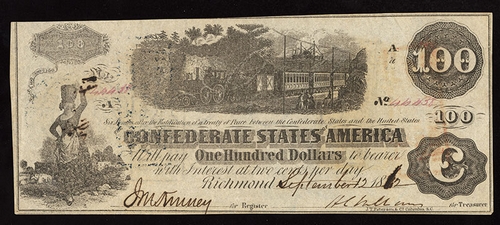 100
A
100
No
Six Months after the Ratification of a Treaty of Peace between the Confederate States and the United States
CONFEDERATE STATES OF AMERICA
100
Will pay One Hundred Dollars to bearer
with Interest at two cents per day
C
Richmond September 12 1862
for Register
for Treasurer
J.T. Paterson & Co. Columbia, S.C.